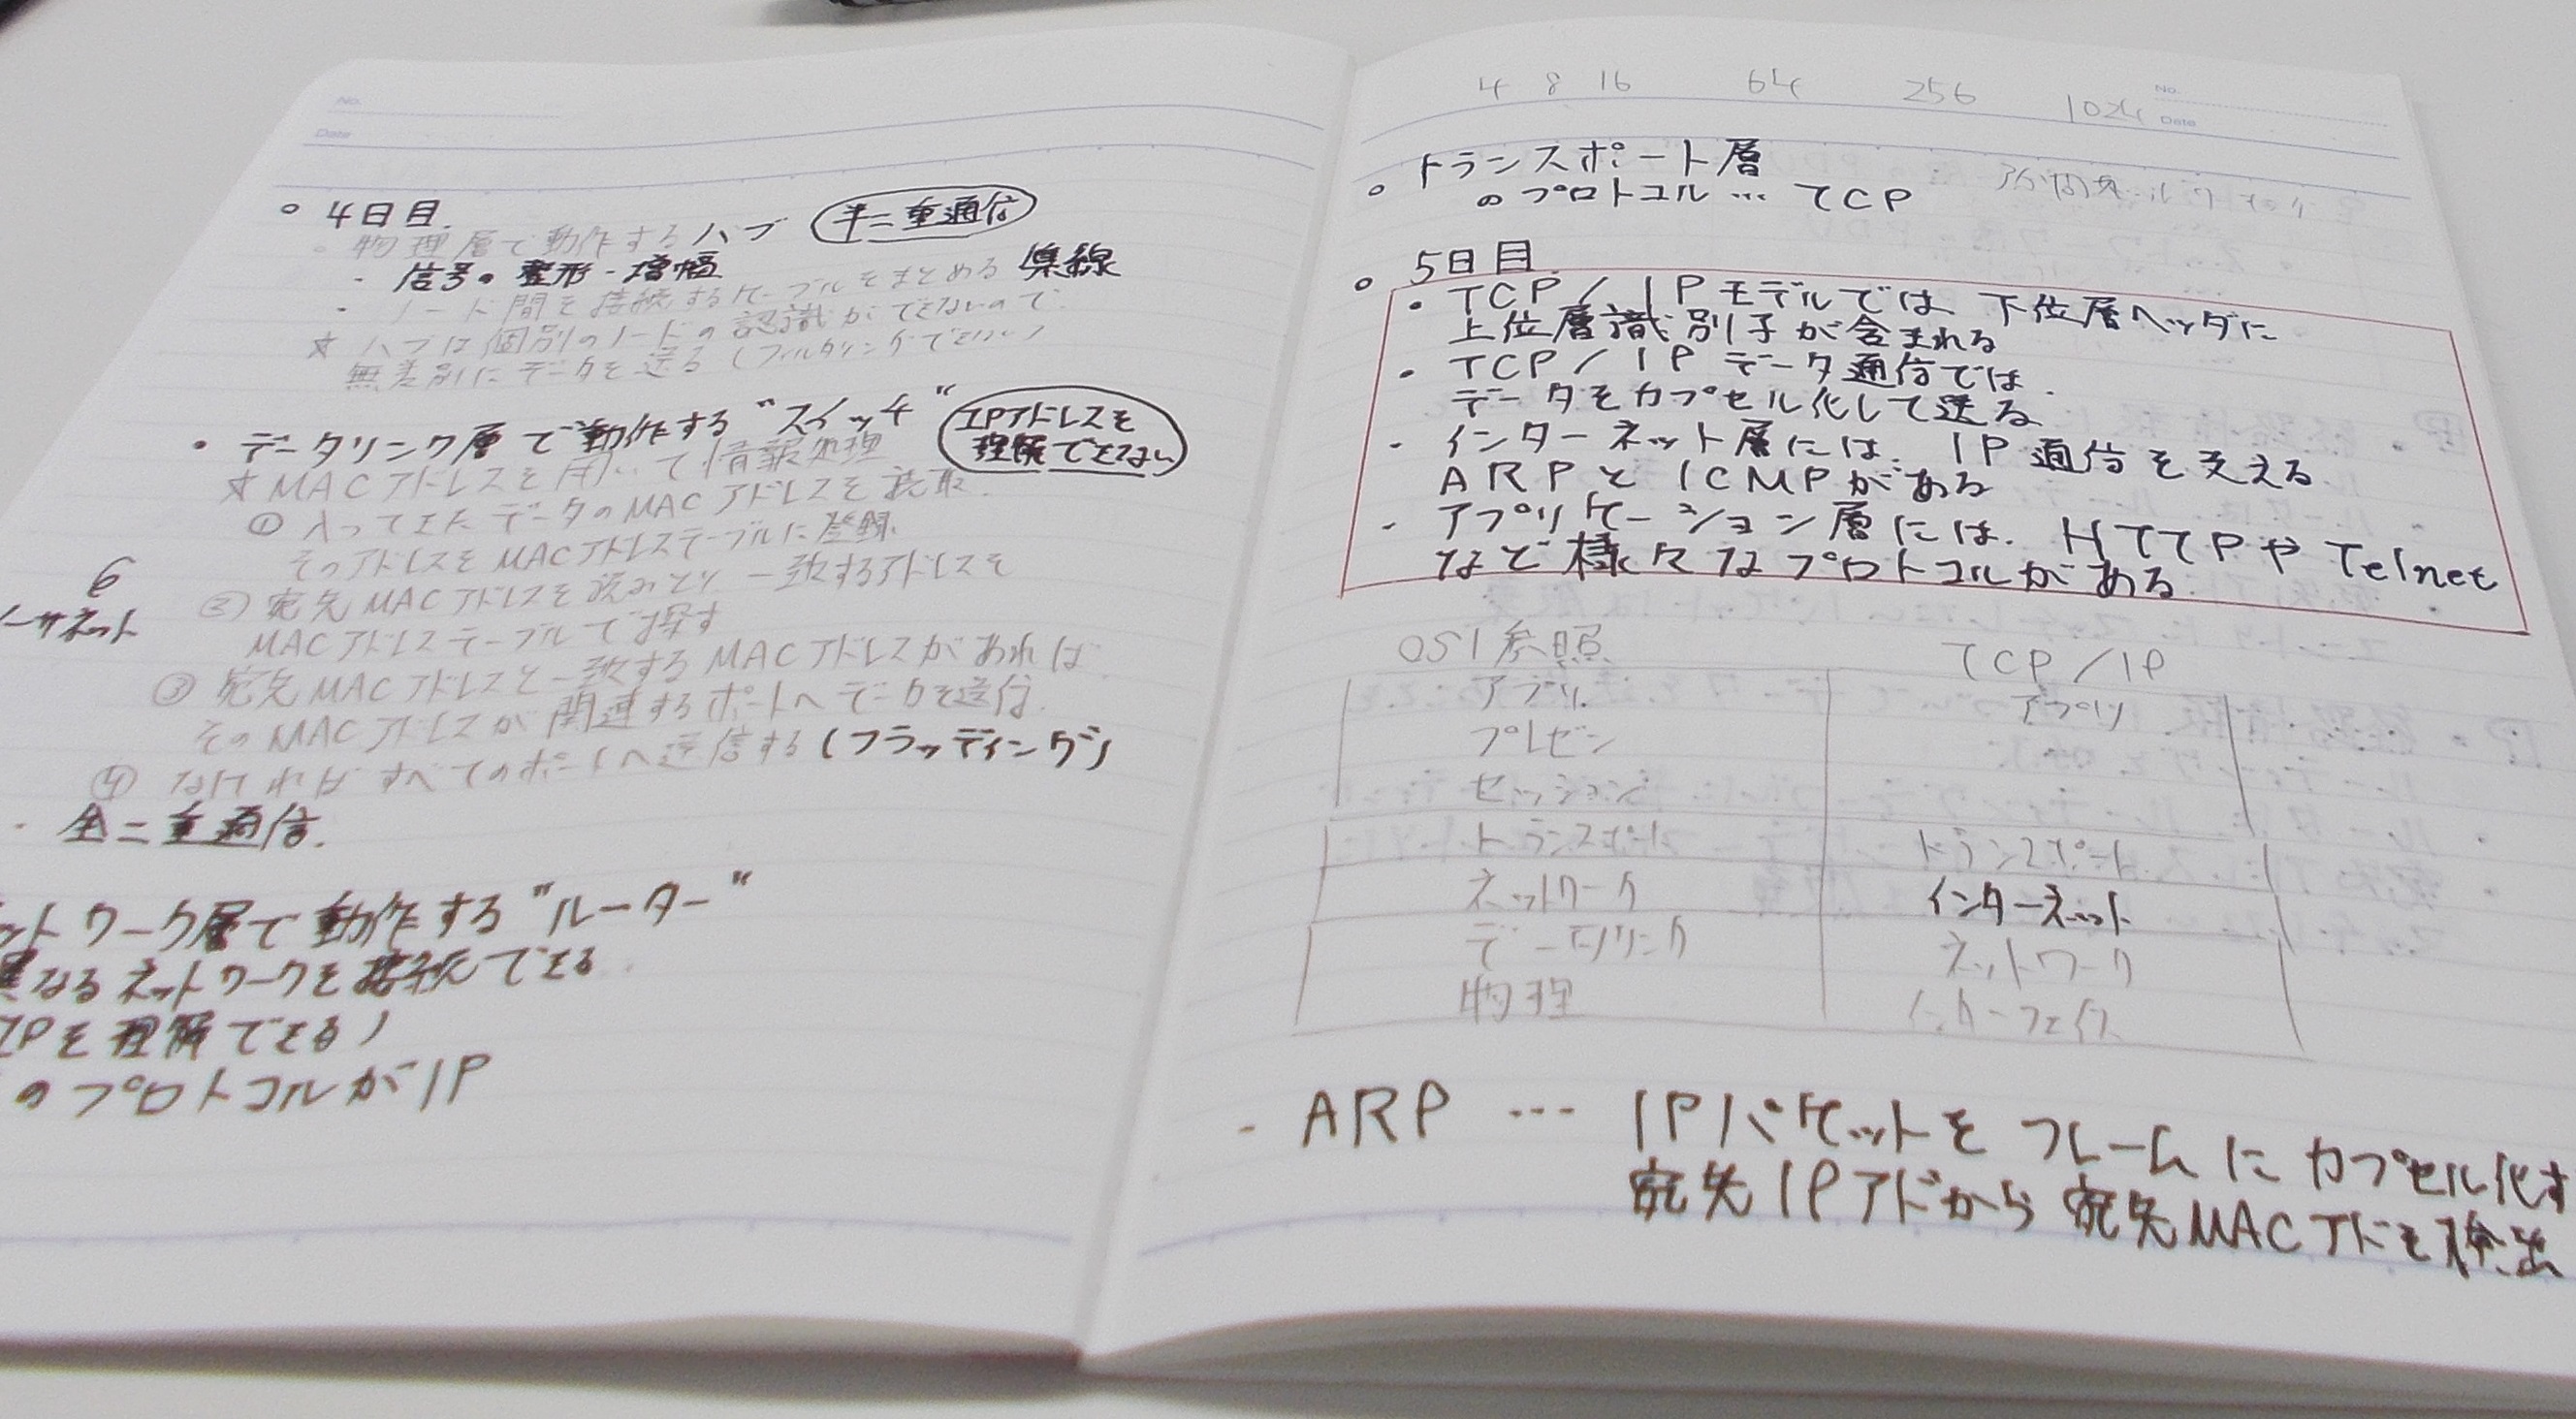 No.
Date
◦ 4日目.
◦ 物理層で動作するハブ 半二重通信
- 信号の整形・増幅
- ノード間を接続するケーブルをまとめる 集線
☆ ハブは個別のノードの認識ができないので
無差別にデータを送る (フィルタリングできない)
・ データリンク層で動作する "スイッチ" IPアドレスを
理解できない
☆ MACアドレスを用いて情報処理
① 入ってきたデータのMACアドレスを読取.
そのアドレスをMACアドレステーブルに登録.
② 宛先MACアドレスを読みとり 一致するアドレスを
MACアドレステーブルで探す
③ 宛先MACアドレスと一致するMACアドレスがあれば
そのMACアドレスが関連するポートへデータを送信.
④ なければすべてのポートへ送信する (フラッディング)
- 全二重通信.
6
ーサネット
ットワーク層で動作する "ルーター"
異なるネットワークを接続できる
IPを理解できる)
のプロトコルがIP
4 8 16 64 256 1024
No.
Date
◦ トランスポート層
のプロトコル … TCP
◦ 5日目.
・ TCP/IPモデルでは、下位層ヘッダに
上位層識別子が含まれる
・ TCP/IPデータ通信では.
データをカプセル化して送る
- インターネット層には、IP通信を支える
ARPとICMPがある
- アプリケーション層には、HTTPやTelnet
など様々なプロトコルがある
OSI参照 TCP/IP
アプリ. アプリ
プレゼン
セッション
トランスポート トランスポート
ネットワーク インターネット
データリンク ネットワーク
物理 インターフェイス
- ARP … IPパケットをフレームにカプセル化す
宛先IPアドから宛先MACアドを検出